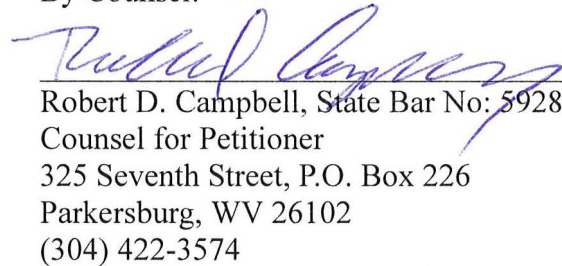 By Counsel:
Robert D. Campbell, State Bar No: 5928
Counsel for Petitioner
325 Seventh Street, P.O. Box 226
Parkersburg, WV 26102
(304) 422-3574